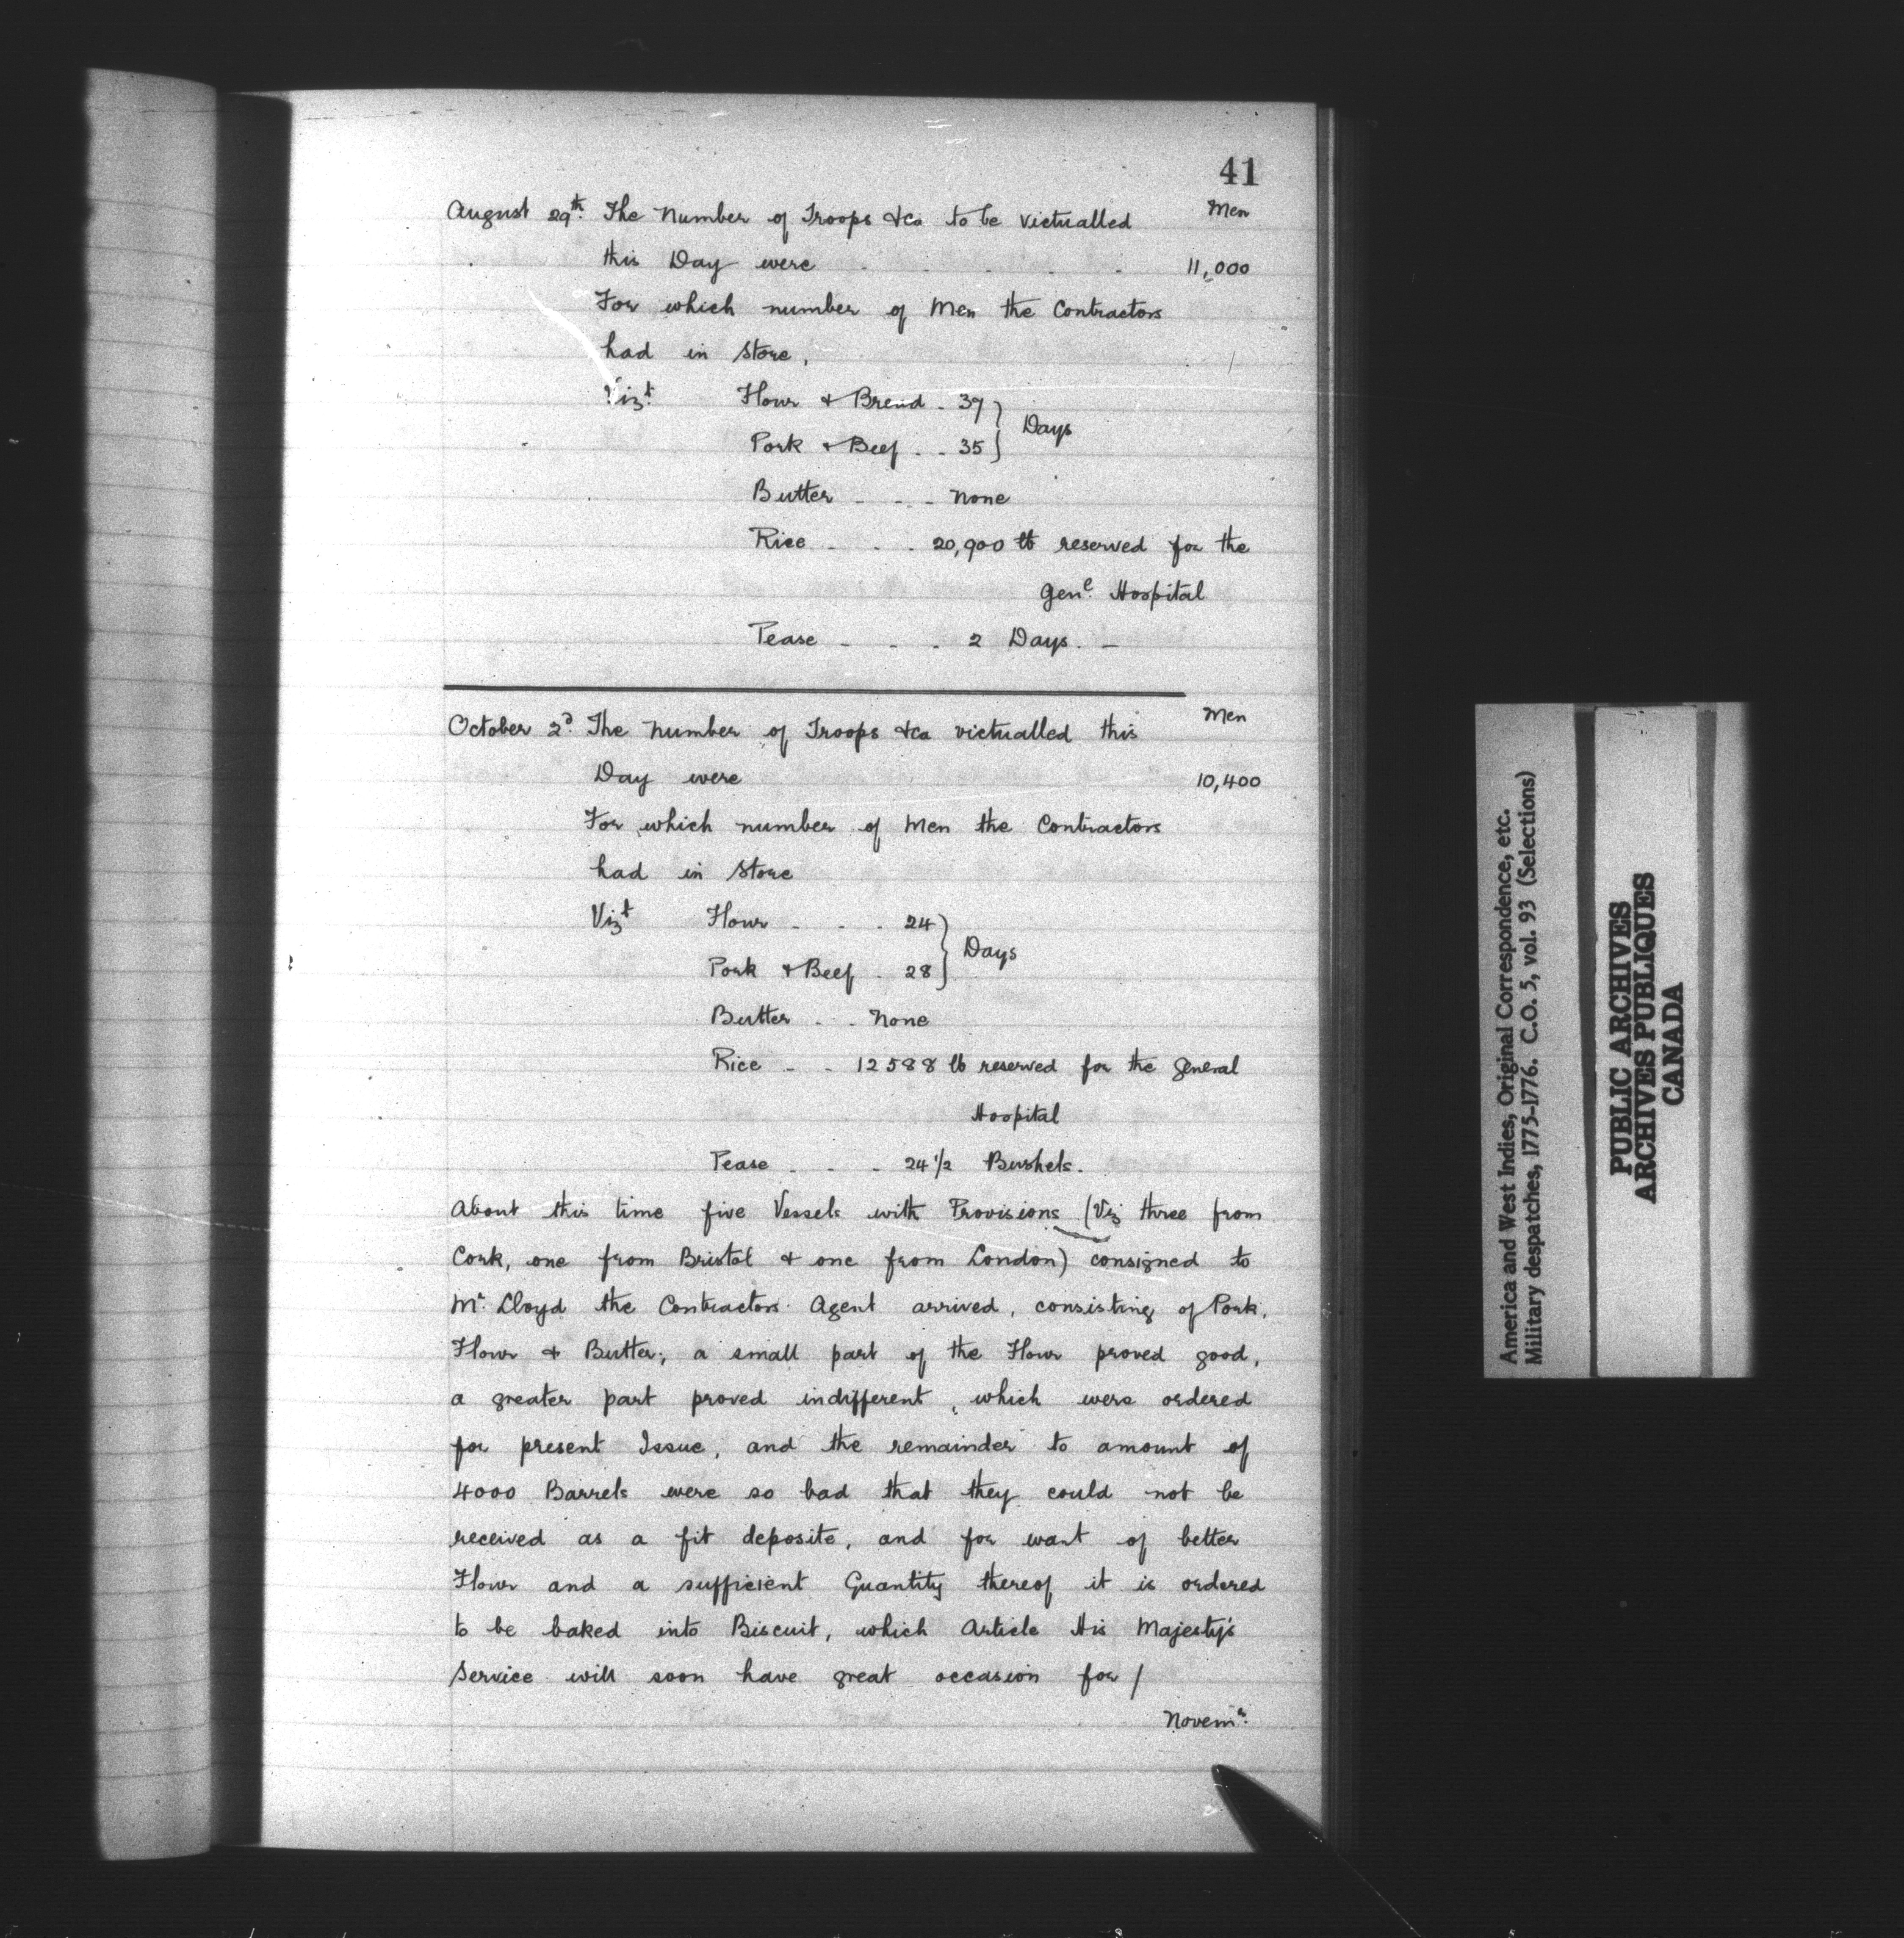 41
August 29th. The Number of Troops &ca to be Victualled Men
this Day were - - - - - - 11,000
For which number of Men the Contractors
had in Store,
Vizt. Flour & Bread - 37 } Days
Pork & Beef - - 35 }
Butter - - - None
Rice - - - 20,900 lb reserved for the
Gene. Hospital
Pease - - - 2 Days. -
October 2d. The Number of Troops &ca victualled this Men
Day were 10,400
For which number of Men the Contractors
had in Store
Vizt Flour - - - 24 } Days
Pork & Beef - 28 }
Butter - - None
Rice - - 12588 lb reserved for the General
Hospital
Pease - - - 24 1/2 Bushels.
About this time five Vessels with Provisions (Viz three from
Cork, one from Bristol & one from London) consigned to
Mr. Lloyd the Contractors Agent arrived, consisting of Pork,
Flour & Butter; a small part of the Flour proved good,
a greater part proved indifferent, which were ordered
for present Issue, and the remainder to amount of
4000 Barrels were so bad that they could not be
received as a fit deposite, and for want of better
Flour and a sufficient Quantity thereof it is ordered
to be baked into Biscuit, which Article His Majesty's
Service will soon have great occasion for /
Novemr.
America and West Indies, Original Correspondence, etc.
Military despatches, 1775-1776. C.O. 5, vol. 93 (Selections)
PUBLIC ARCHIVES
ARCHIVES PUBLIQUES
CANADA